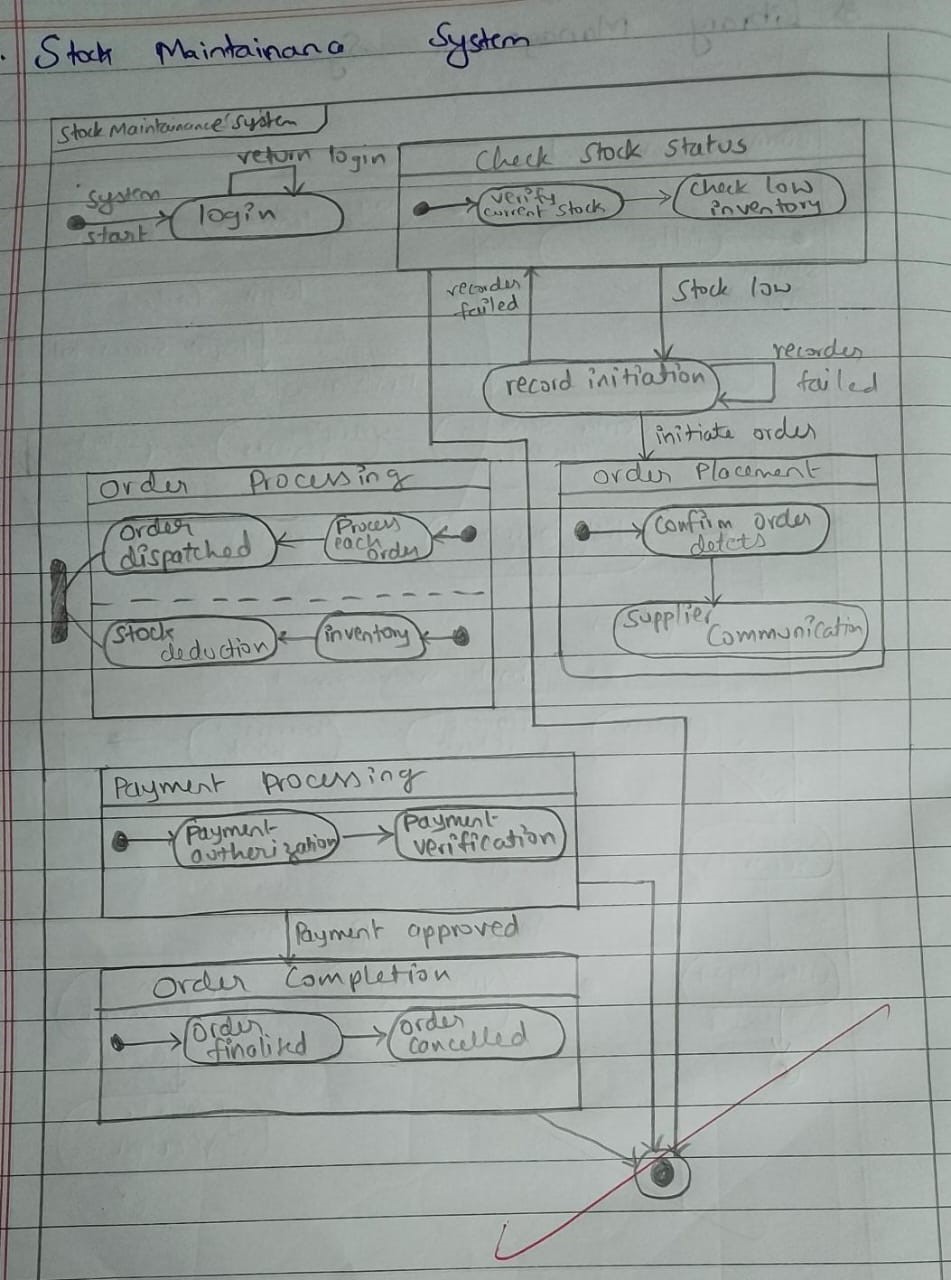 Stock Maintainana System
Stock Maintainance System
return login
system
start
login
Check Stock Status
verify
current stock
check low
inventory
recorder
failed
Stock low
record initiation
recorder
failed
initiate order
Order Processing
Order
dispatched
Process
each
order
Stock
deduction
inventory
Order Placement
Confirm order
detcts
Supplier
Communication
Payment Processing
Payment
autherization
Payment
verification
Payment approved
Order Completion
Order
finalised
Order
cancelled